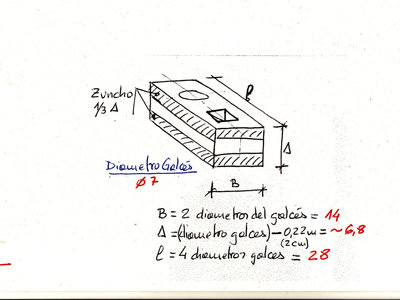 Zuncho
1/3 Δ
l
Δ
Diametro Galces
Ø 7
B
B = 2 diametros del galces = 14
Δ = (diametro galces) - 0,22m = ~ 6,8
(2cm)
l = 4 diametros galces = 28